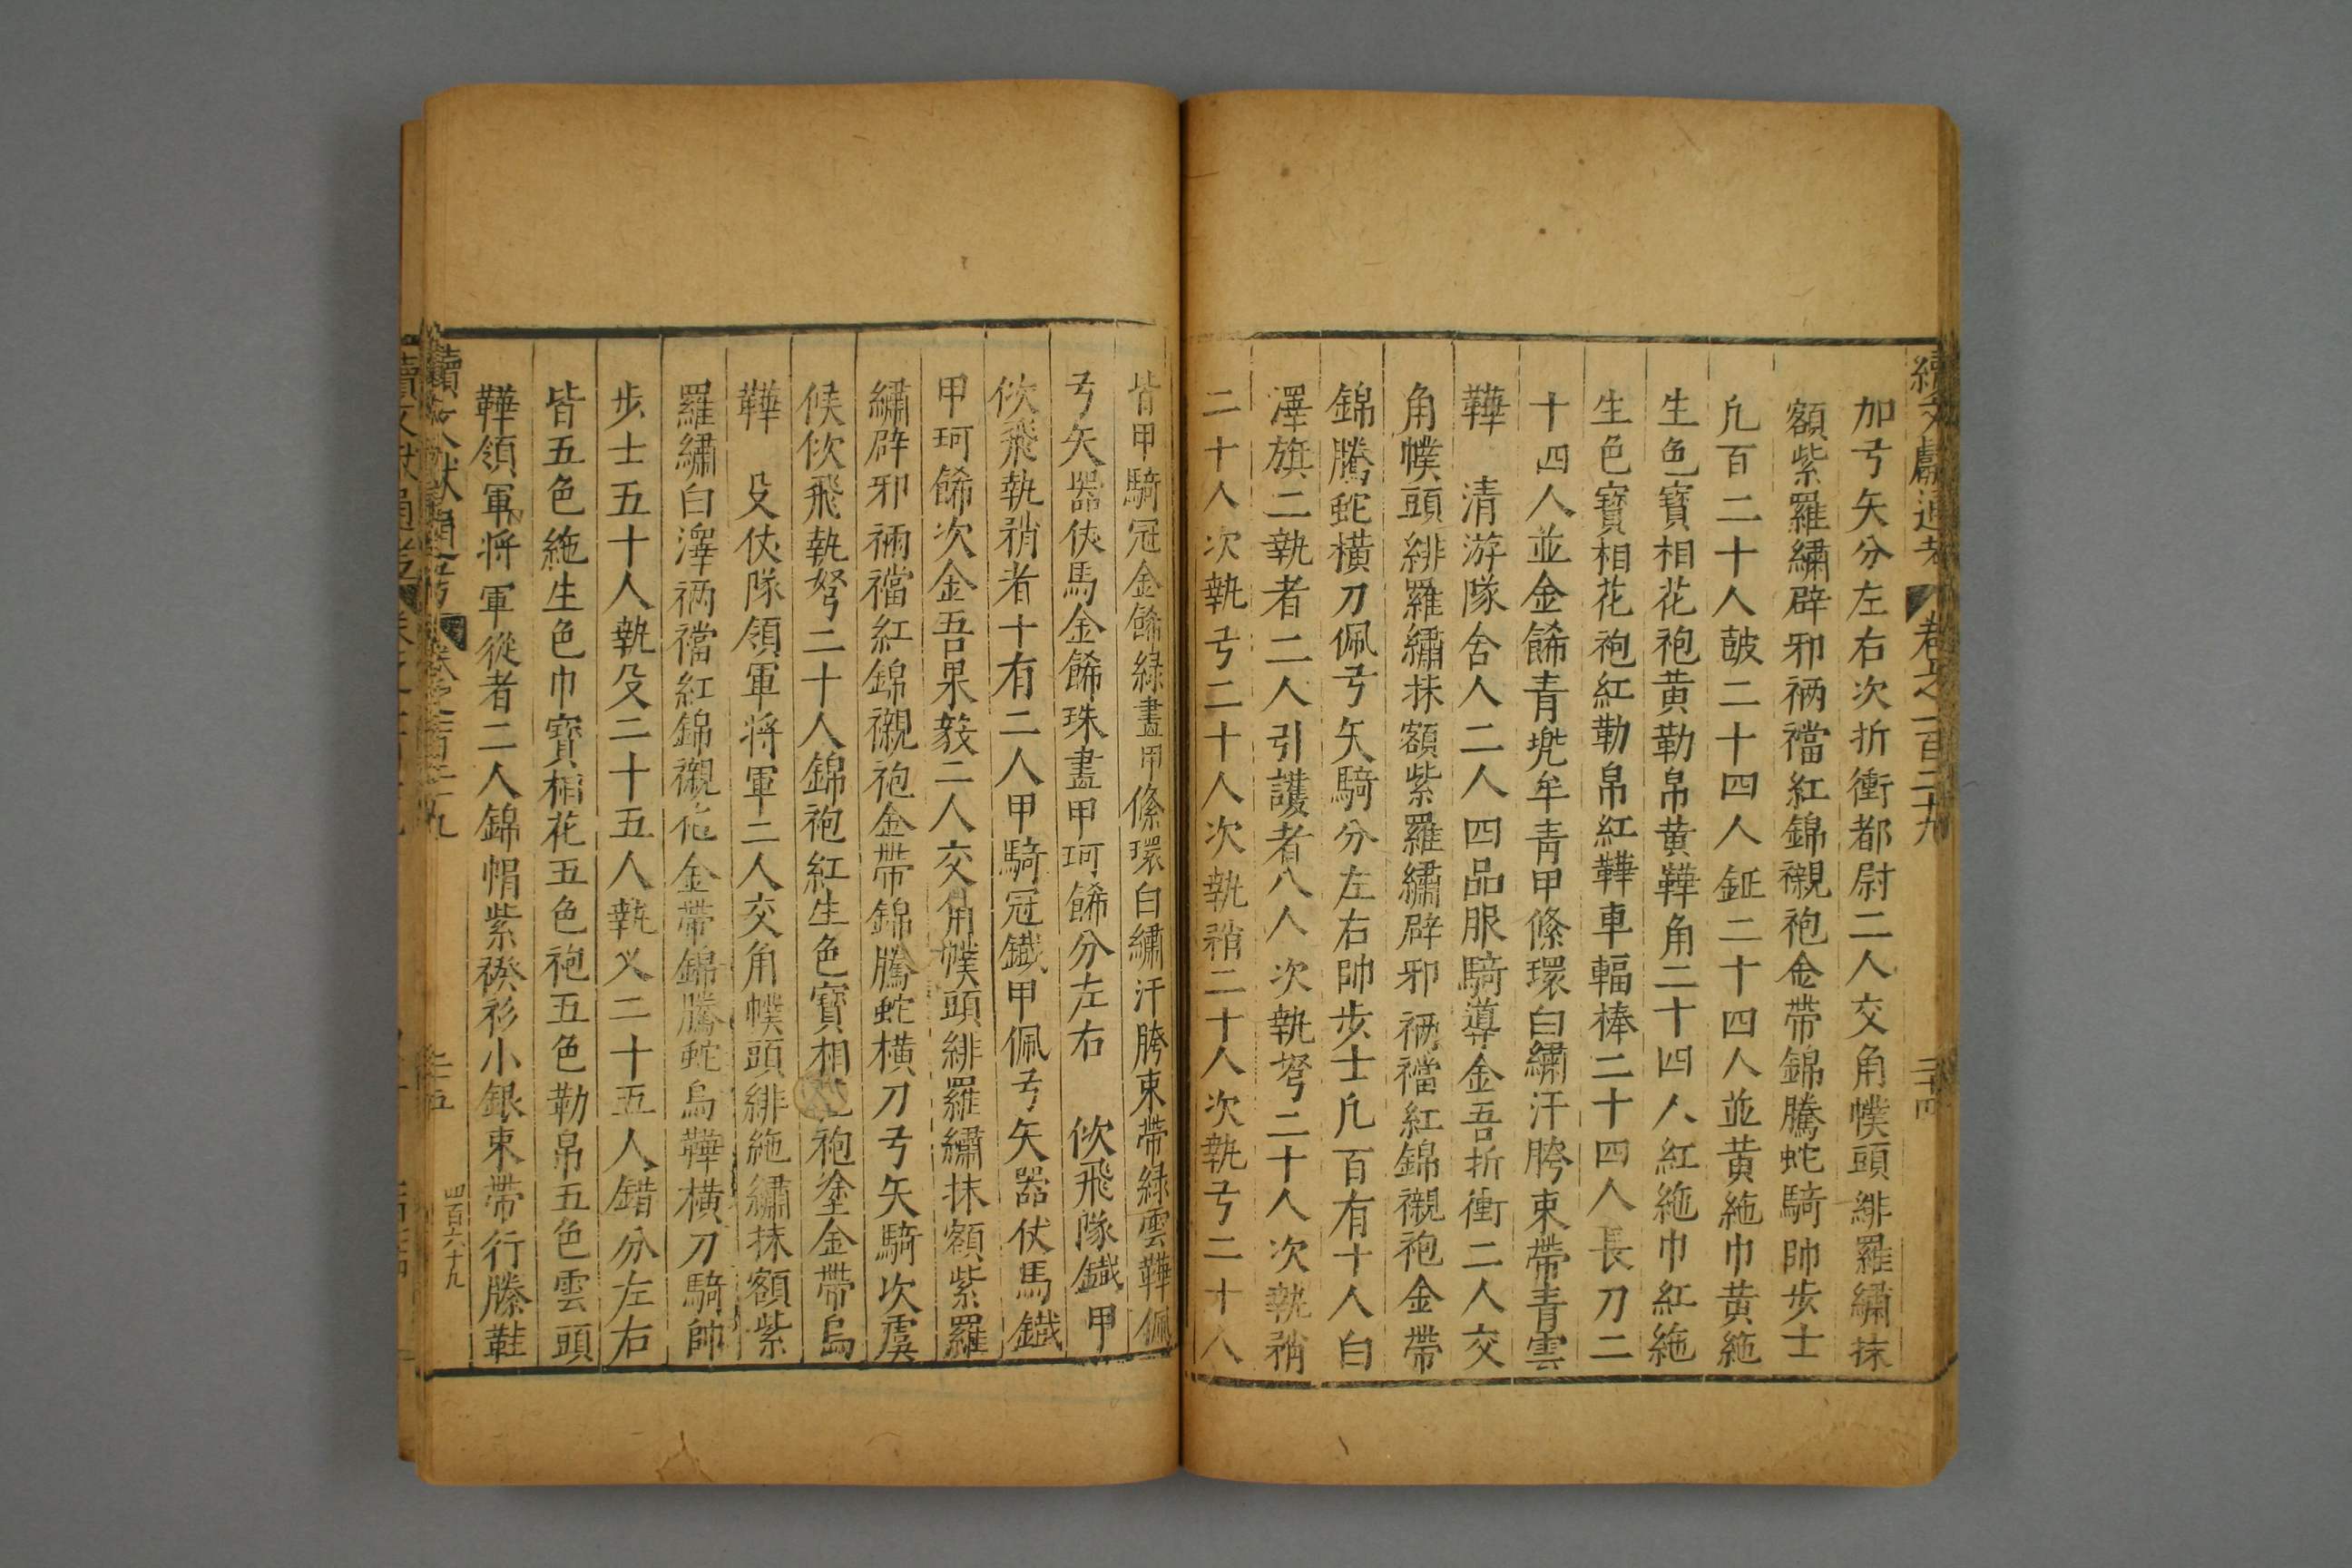 續文獻通考 卷之一百二十九 二十四
加弓矢分左右次折衝都尉二人交角幞頭緋羅繡抹
額紫羅繡辟邪裲襠紅錦襯袍金帶錦騰蛇騎帥步士
凡百二十人皷二十四人鉦二十四人並黄絁巾黄絁
生色寶相花袍黄勒帛黄鞾角二十四人紅絁巾紅絁
生色寶相花袍紅勒帛紅鞾車輻棒二十四人長刀二
十四人並金餙青兠牟青甲絛環白繡汗胯束帶青雲
鞾 清游隊舍人二人四品服騎導金吾折衝二人交
角幞頭緋羅繡抹額紫羅繡辟邪裲襠紅錦襯袍金帶
錦騰蛇橫刀佩弓矢騎分左右帥步士凡百有十人白
澤旗二執者二人引護者八人次執弩二十人次執矟
二十人次執弓二十人次執矟二十人次執弓二十人
皆甲騎冠金餙綠畫甲絛環白繡汗胯束帶綠雲鞾佩
弓矢器仗馬金餙珠畫甲珂餙分左右 佽飛隊鐵甲
佽飛執矟者十有二人甲騎冠鐵甲佩弓矢器仗馬鐵
甲珂餙次金吾果毅二人交角幞頭緋羅繡抹額紫羅
繡辟邪裲襠紅錦襯袍金帶錦騰蛇橫刀弓矢騎次虞
候佽飛執弩二十人錦袍紅生色寶相花袍塗金帶烏
鞾 殳仗隊領軍将軍二人交角幞頭緋絁繡抹額紫
羅繡白澤裲襠紅錦襯袍金帶錦騰蛇烏鞾橫刀騎帥
步士五十人執殳二十五人執义二十五人錯分左右
皆五色絁生色巾寶相花五色袍五色勒帛五色雲頭
鞾領軍将軍從者二人錦帽紫褩衫小銀束帶行縢鞋
續文獻通考 卷之一百二十九 二十五 四百六十九